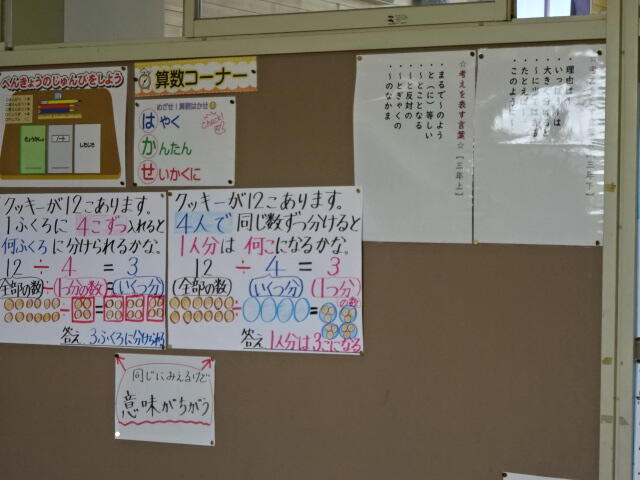 べんきょうのじゅんびをしよう
きょうかしょ
ノート
したじき
算数コーナー
めざせ!算数はかせ
はやく
かんたん
せいかくに
クッキーが12こあります。
1ふくろに 4こずつ入れると
何ふくろに分けられるかな。
12 ÷ 4 = 3
(全部の数)÷(1つ分の数)=(いくつ分)
答え 3ふくろに分けられる
クッキーが12こあります。
4人で 同じ数ずつ分けると
1人分は 何こになるかな。
12 ÷ 4 = 3
(全部の数) (いくつ分) (1つ分の数)
答え 1人分は3こになる
同じにみえるけど
意味がちがう
☆考えを表す言葉☆【三年上】
・まるで~のよう
・と(に)等しい
・~とことなる
・~と反対の
・~とぎゃくの
・~のなかま
【三年下】